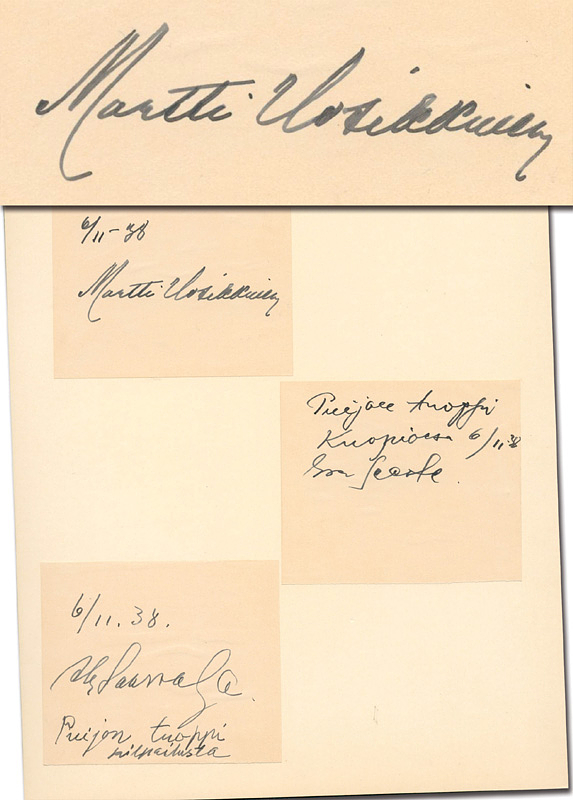 Martti Uosikkinen
6/11-38
Martti Uosikkinen
Puijon tuoppi
Kuopiossa 6/11 38
6/11. 38.
Puijon tuoppi
kilpailusta